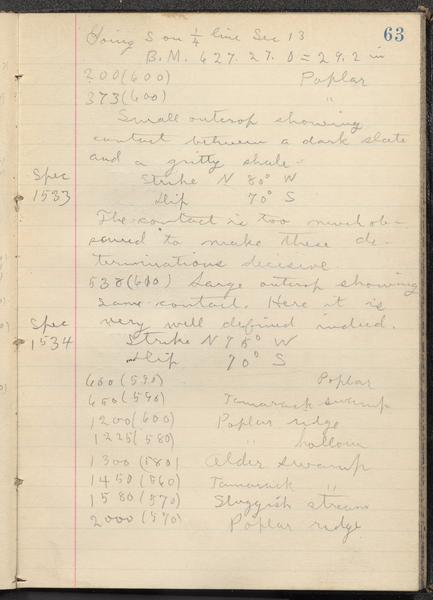 63
Going S on 1/4 line Sec 13
B.M. 627. 27. 0 = 29.2 in
200 (600) Poplar
373 (600) "
Small outcrop showing
contact between a dark slate
and a gritty shale -
Spec Strike N 80° W
1533 Dip 70° S
The contact is too much ob-
scured to make these de-
terminations decisive.
538 (600) Large outcrop showing
same contact. Here it is
Spec very well defined indeed.
1534 Strike N 78° W
Dip 70° S
600 (590) Poplar
650 (590) Tamarack swamp
1200 (600) Poplar ridge
1225 (580) " hollow
1300 (580) Alder swamp
1450 (560) Tamarack "
1580 (570) Sluggish stream
2000 (570) Poplar ridge